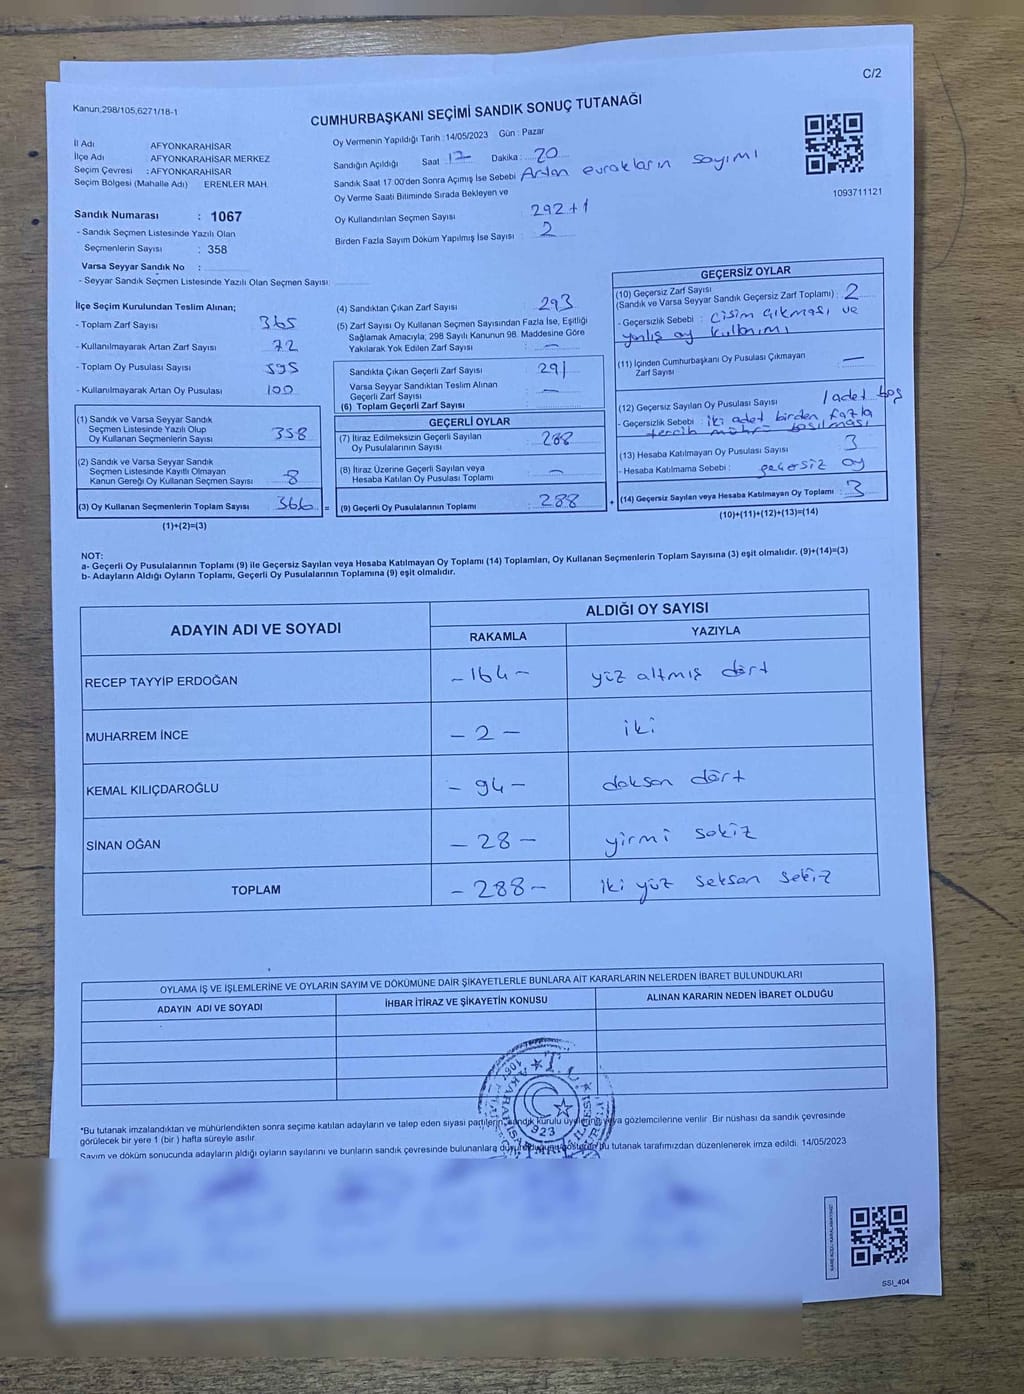 C/2
Kanun,298/105,6271/18-1
CUMHURBAŞKANI SEÇİMİ SANDIK SONUÇ TUTANAĞI
İl Adı AFYONKARAHİSAR
İlçe Adı AFYONKARAHİSAR MERKEZ
Seçim Çevresi : AFYONKARAHİSAR
Seçim Bölgesi (Mahalle Adı) ERENLER MAH.
Oy Vermenin Yapıldığı Tarih :14/05/2023 Gün : Pazar
Sandığın Açıldığı Saat 17 Dakika : 20
Sandık Saat 17.00'den Sonra Açımış İse Sebebi Artan evrakların sayımı
Oy Verme Saati Bitiminde Sırada Bekleyen ve
Oy Kullandırılan Seçmen Sayısı : 292+1
Birden Fazla Sayım Döküm Yapılmış İse Sayısı : 2
1093711121
Sandık Numarası : 1067
- Sandık Seçmen Listesinde Yazılı Olan
Seçmenlerin Sayısı : 358
Varsa Seyyar Sandık No :
- Seyyar Sandık Seçmen Listesinde Yazılı Olan Seçmen Sayısı:
İlçe Seçim Kurulundan Teslim Alınan;
- Toplam Zarf Sayısı 365
- Kullanılmayarak Artan Zarf Sayısı 72
- Toplam Oy Pusulası Sayısı 595
- Kullanılmayarak Artan Oy Pusulası 100
(1) Sandık ve Varsa Seyyar Sandık
Seçmen Listesinde Yazılı Olup
Oy Kullanan Seçmenlerin Sayısı 358
(2) Sandık ve Varsa Seyyar Sandık
Seçmen Listesinde Kayıtlı Olmayan
Kanun Gereği Oy Kullanan Seçmen Sayısı 8
(3) Oy Kullanan Seçmenlerin Toplam Sayısı 366 =
(1)+(2)=(3)
(4) Sandıktan Çıkan Zarf Sayısı : 293
(5) Zarf Sayısı Oy Kullanan Seçmen Sayısından Fazla İse, Eşitliği
Sağlamak Amacıyla, 298 Sayılı Kanunun 98. Maddesine Göre
Yakılarak Yok Edilen Zarf Sayısı : —
Sandıkta Çıkan Geçerli Zarf Sayısı : 291
Varsa Seyyar Sandıktan Teslim Alınan
Geçerli Zarf Sayısı : —
(6) Toplam Geçerli Zarf Sayısı
GEÇERLİ OYLAR
(7) İtiraz Edilmeksizin Geçerli Sayılan
Oy Pusulalarının Sayısı : 288
(8) İtiraz Üzerine Geçerli Sayılan veya
Hesaba Katılan Oy Pusulası Toplamı : —
(9) Geçerli Oy Pusulalarının Toplamı : 288 +
GEÇERSİZ OYLAR
(10) Geçersiz Zarf Sayısı
(Sandık ve Varsa Seyyar Sandık Geçersiz Zarf Toplamı) : 2
- Geçersizlik Sebebi : Cisim çıkması ve
yanlış oy kullanımı
(11) İçinden Cumhurbaşkanı Oy Pusulası Çıkmayan
Zarf Sayısı —
(12) Geçersiz Sayılan Oy Pusulası Sayısı 1 adet boş
- Geçersizlik Sebebi : iki adet birden fazla
tercih mührü basılması
(13) Hesaba Katılmayan Oy Pusulası Sayısı : 3
- Hesaba Katılmama Sebebi : geçersiz oy
(14) Geçersiz Sayılan veya Hesaba Katılmayan Oy Toplamı : 3
(10)+(11)+(12)+(13)=(14)
NOT:
a- Geçerli Oy Pusulalarının Toplamı (9) ile Geçersiz Sayılan veya Hesaba Katılmayan Oy Toplamı (14) Toplamları, Oy Kullanan Seçmenlerin Toplam Sayısına (3) eşit olmalıdır. (9)+(14)=(3)
b- Adayların Aldığı Oyların Toplamı, Geçerli Oy Pusulalarının Toplamına (9) eşit olmalıdır.
ADAYIN ADI VE SOYADI ALDIĞI OY SAYISI
RAKAMLA YAZIYLA
RECEP TAYYİP ERDOĞAN - 164 - yüz altmış dört
MUHARREM İNCE - 2 - iki
KEMAL KILIÇDAROĞLU - 94 - doksan dört
SİNAN OĞAN - 28 - yirmi sekiz
TOPLAM - 288 - iki yüz seksen sekiz
OYLAMA İŞ VE İŞLEMLERİNE VE OYLARIN SAYIM VE DÖKÜMÜNE DAİR ŞİKAYETLERLE BUNLARA AİT KARARLARIN NELERDEN İBARET BULUNDUKLARI
ADAYIN ADI VE SOYADI İHBAR İTİRAZ VE ŞİKAYETİN KONUSU ALINAN KARARIN NEDEN İBARET OLDUĞU
*Bu tutanak imzalandıktan ve mühürlendikten sonra seçime katılan adayların ve talep eden siyasi partilerin sandık kurulu üyelerine veya gözlemcilerine verilir. Bir nüshası da sandık çevresinde
görülecek bir yere 1 (bir ) hafta süreyle asılır.
Sayım ve döküm sonucunda adayların aldığı oyların sayılarını ve bunların sandık çevresinde bulunanlara bu tutanak tarafımızdan düzenlenerek imza edildi. 14/05/2023
923
SSI_404